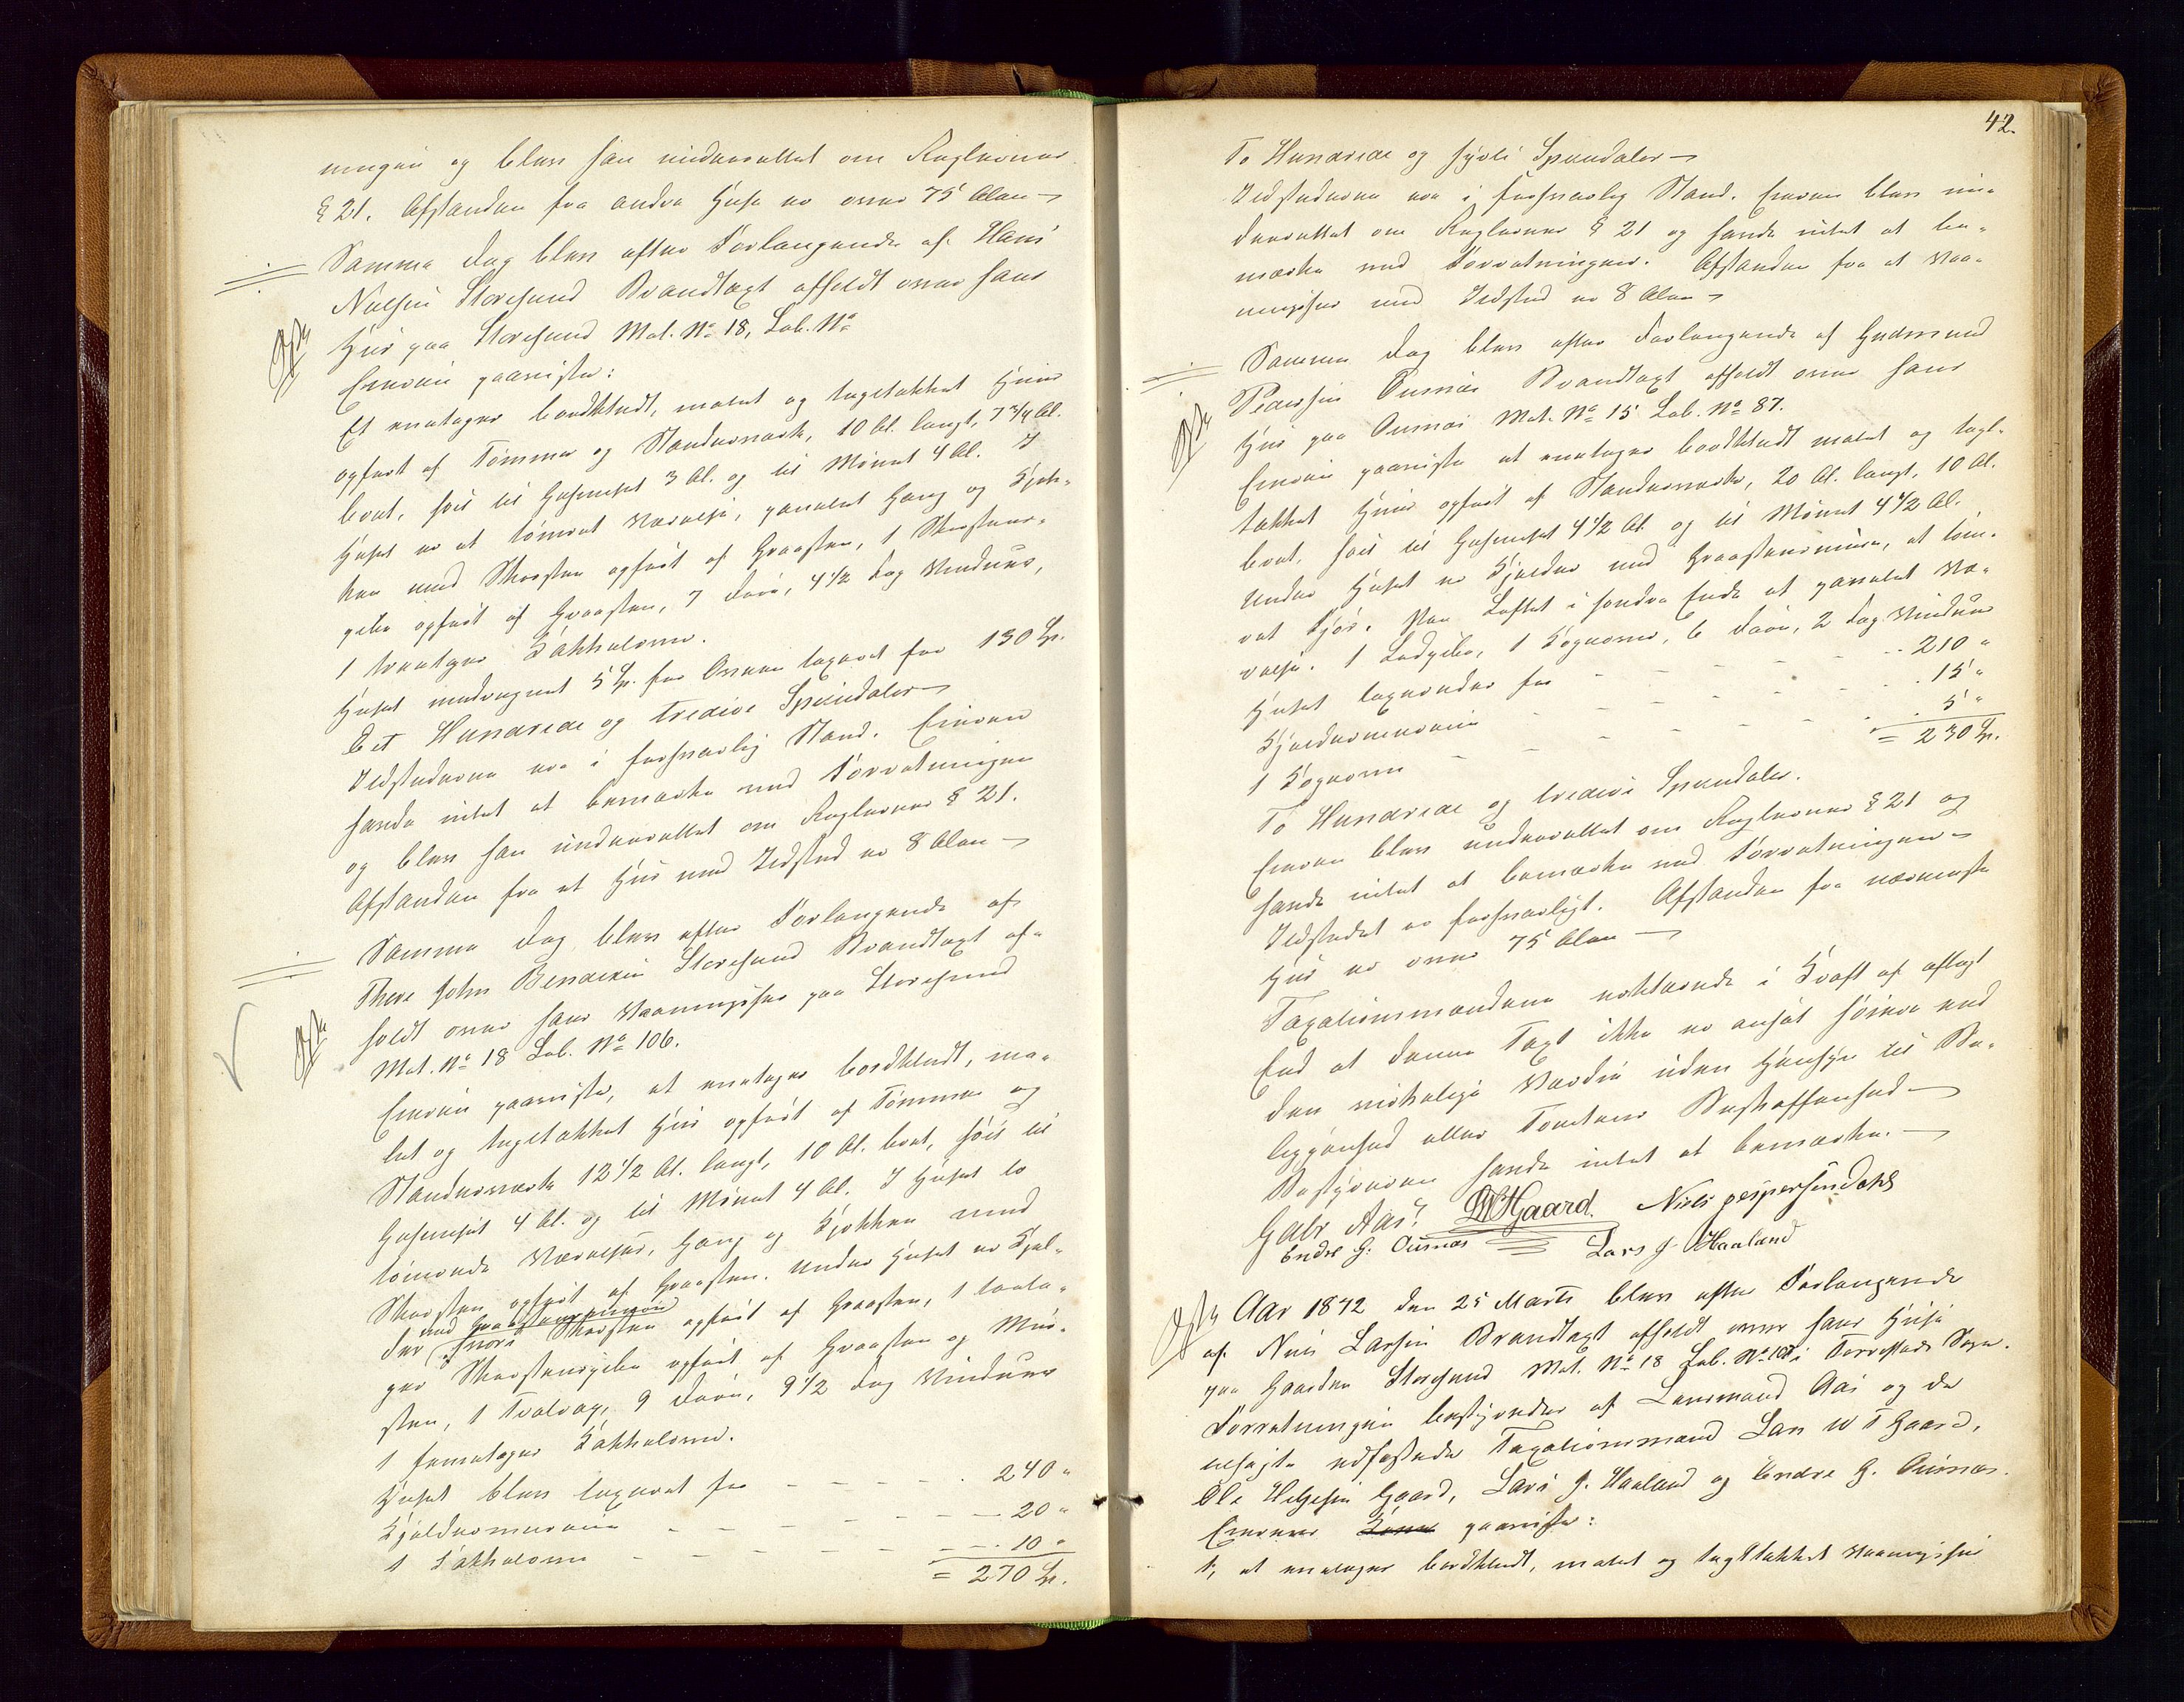 ningen og blev han underrettet om Reglernes
§ 21. Afstanden fra andre Huse er over 75 Alen —
Samme Dag blev efter Forlangende af Hans
Nielsen Storesund Brandtaxt afholdt over hans
Huus paa Storesund Mat. No 18, Løb. No
Eieren paaviste:
Et eenetages bordklædt, malet og tegltækket Huus
opført af Tømmer og Standerværk, 10 Al. langt, 7 3/4 Al.
bredt, høit til Gesimset 3 Al. og til Mønet 4 Al. I
Huset er et tømret Værelse, panelet Gang og Kjøk-
ken med Skorsten opført af Graasten, 1 Skorstens-
pibe opført af Graasten, 7 Døre, 4 1/2 Fag Vinduer,
1 treetages Kakkelovn.
Huset medregnet 5 Sp. for Ovnen taxeret for 130 Sp.
Eet Hundrede og tredive Speciedaler —
Ildstederne ere i forsvarlig Stand. Eieren
havde intet at bemærke ved Forretningen
og blev han underrettet om Reglernes § 21.
Afstanden fra et Huus med Ildsted er 8 Alen —
Samme Dag blev efter Forlangende af
Thore John Bendixen Storesund Brandtaxt af-
holdt over hans Vaaningshus paa Storesund
Mat. No 18 Løb. No 106.
Eieren paaviste, et eenetages bordklædt, ma-
let og tegltækket Huus opført af Tømmer og
Standerværk 12 1/2 Al. langt, 10 Al. bredt, høit til
Gesimset 4 Al. og til Mønet 4 Al. I Huset to
tømrede Værelser, Gang og Kjøkken med
Skorsten opført af Graasten. Under Huset er Kjel-
med Graastensmure
der hvori Skorsten opført af Graasten, 1
ger Skorstenspibe opført af Graasten og Mur-
sten, 1 9 Døre, 9 1/2 Fag Vinduer
1 femetages Kakkelovn.
Huset blev taxeret for — — — 240 "
Kjeldermurene — — — — — 20 "
1 Kakkelovn — — — — — 10 "
= 270 Sp.
42.
To Hundrede og sytti Speciedaler —
Ildstederne ere i forsvarlig Stand. Eieren blev un-
derrettet om Reglernes § 21 og havde intet at be-
mærke ved Forretningen. Afstanden fra et Vaa-
ningshus med Ildsted er 8 Alen —
Samme Dag blev efter Forlangende af Gudmund
Pedersen Osnæs Brandtaxt afholdt over hans
Huus paa Osnæs Mat. No 15 Løb. No 87.
Eieren paaviste et eenetages bordklædt malet og tegl-
tækket Huus opført af Standerværk, 20 Al. langt, 10 Al.
bredt, høit til Gesimset 4 1/2 Al. og til Mønet 4 1/2 Al.
Under Huset er Kjelder med Graastensmure, et tøm-
ret Paa Loftet i søndre Ende et panelet Væ-
relse. 1 1 Kogeovn, 6 Døre, 2 Fag Vinduer
Huset taxeredes for — — — 210 "
Kjeldermurene — — — 15 "
1 Kogeovn — — — 5 "
= 230 Sp.
To Hundrede og tredive Speciedaler.
Eieren blev underrettet om Reglernes § 21 og
havde intet at bemærke ved Forretningen —
Ildstedet er forsvarligt. Afstanden fra nærmeste
Huus er over 75 Alen —
Taxationsmændene erklærede i Kraft af aflagt
Eed at denne Taxt ikke er ansat høiere end
den virkelige Værdie uden Hensyn til Be-
liggenhed eller Tomtens Beskaffenhed —
Bestyreren havde intet at bemærke. —
Gabr Aas. LWTGaard. Niels Jespersen Dahl
Endre G. Osnæs Lars J. Haaland
Aar 1872 den 25 Marts blev efter Forlangende
af Nils Larsen Brandtaxt afholdt over hans Huse
paa Gaarden Storesund Mat. No 18 Løb. No 107 i Torvestads Sogn.
Forretningen bestyredes af Lensmand Aas og de
edfæstede Taxationsmænd Lars W T Gaard,
Ole Helgesen Gaard, Lars J. Haaland og Endre G. Osnæs.
Eieren paaviste:
1, et eenetages bordklædt, malet og tegltækket Vaaningshus